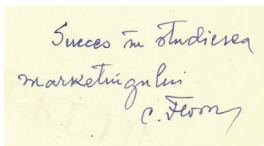 Succes în studierea
marketingului
C. Florescu